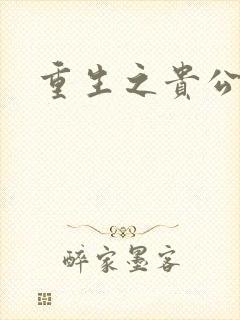 重生之貴公
醉家墨客